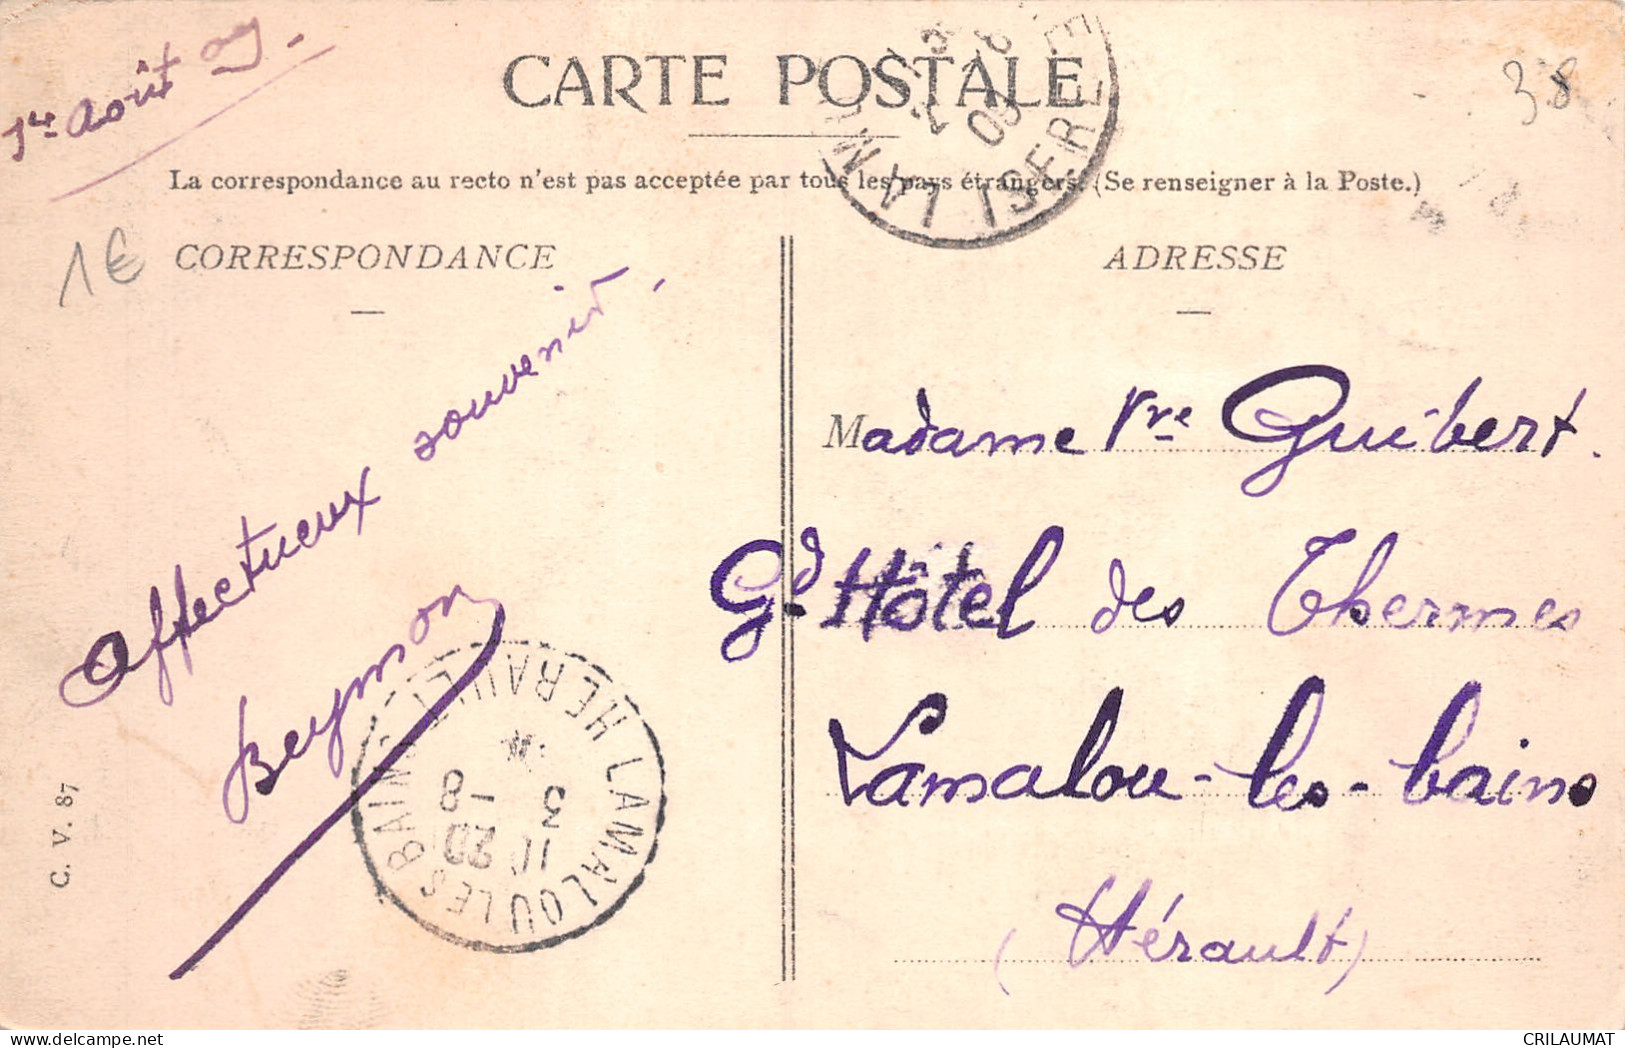 1er Août 09.
CARTE POSTALE
38
La correspondance au recto n'est pas acceptée par tous les pays étrangers. (Se renseigner à la Poste.)
1€
CORRESPONDANCE
Affectueux souvenir.
Beymon
C. V. 87
LAMALOU LES BAINS HERAULT
11 20
3 -8
ADRESSE
LA ISERE
09
Madame Vve Guibert.
Gd Hôtel des Thermes
Lamalou-les-bains
(Hérault)
CRILAUMAT